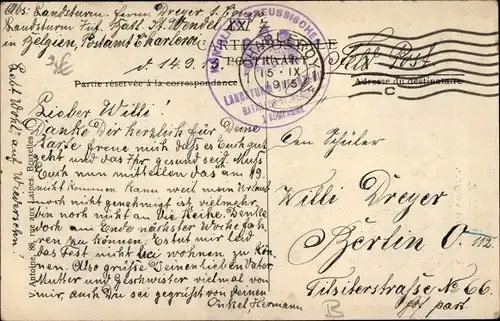 Abs: Landsturm. Herm. Dreyer 1. Komp.
Landsturm Inf. Batl. St. Wendel XXI 4
in Belgien, Postamt Charleroi
d 14.9.
CARTE POSTALE
POSTKAART
Feld-Post
Partie réservée à la correspondance
Adresse du destinataire
CHARLEROY 1
15-IX
1915
KÖNIGL. PREUSSISCHES
LANDSTURM
1 KOMPAGNIE
Lieber Willi!
Danke Dir herzlich für Deine
Karte freue mich dass es Euch gut
geht und das Ihr gesund seid. Muß
Euch nun mitteilen das am 19.
nicht kommen kann weil mein Urlaub
noch nicht genehmigt ist vielmehr
bin noch nicht an die Reihe. Denke
doch am Ende nächster Woche fah-
ren zu können. Es tut mir leid
das Fest nicht bei wohnen zu kön-
nen. Also grüße Deinen lieben Vater
Mutter und Geschwister vielmal von
mir, auch Du sei gegrüßt von deinem
Onkel, Hermann
Lebt Wohl auf Wiedersehn!
Antoine 88, rue aux Laines, Bruxelles
Den Schüler
Willi Dreyer
Berlin O. 112
Tilsiterstrasse No 66
part